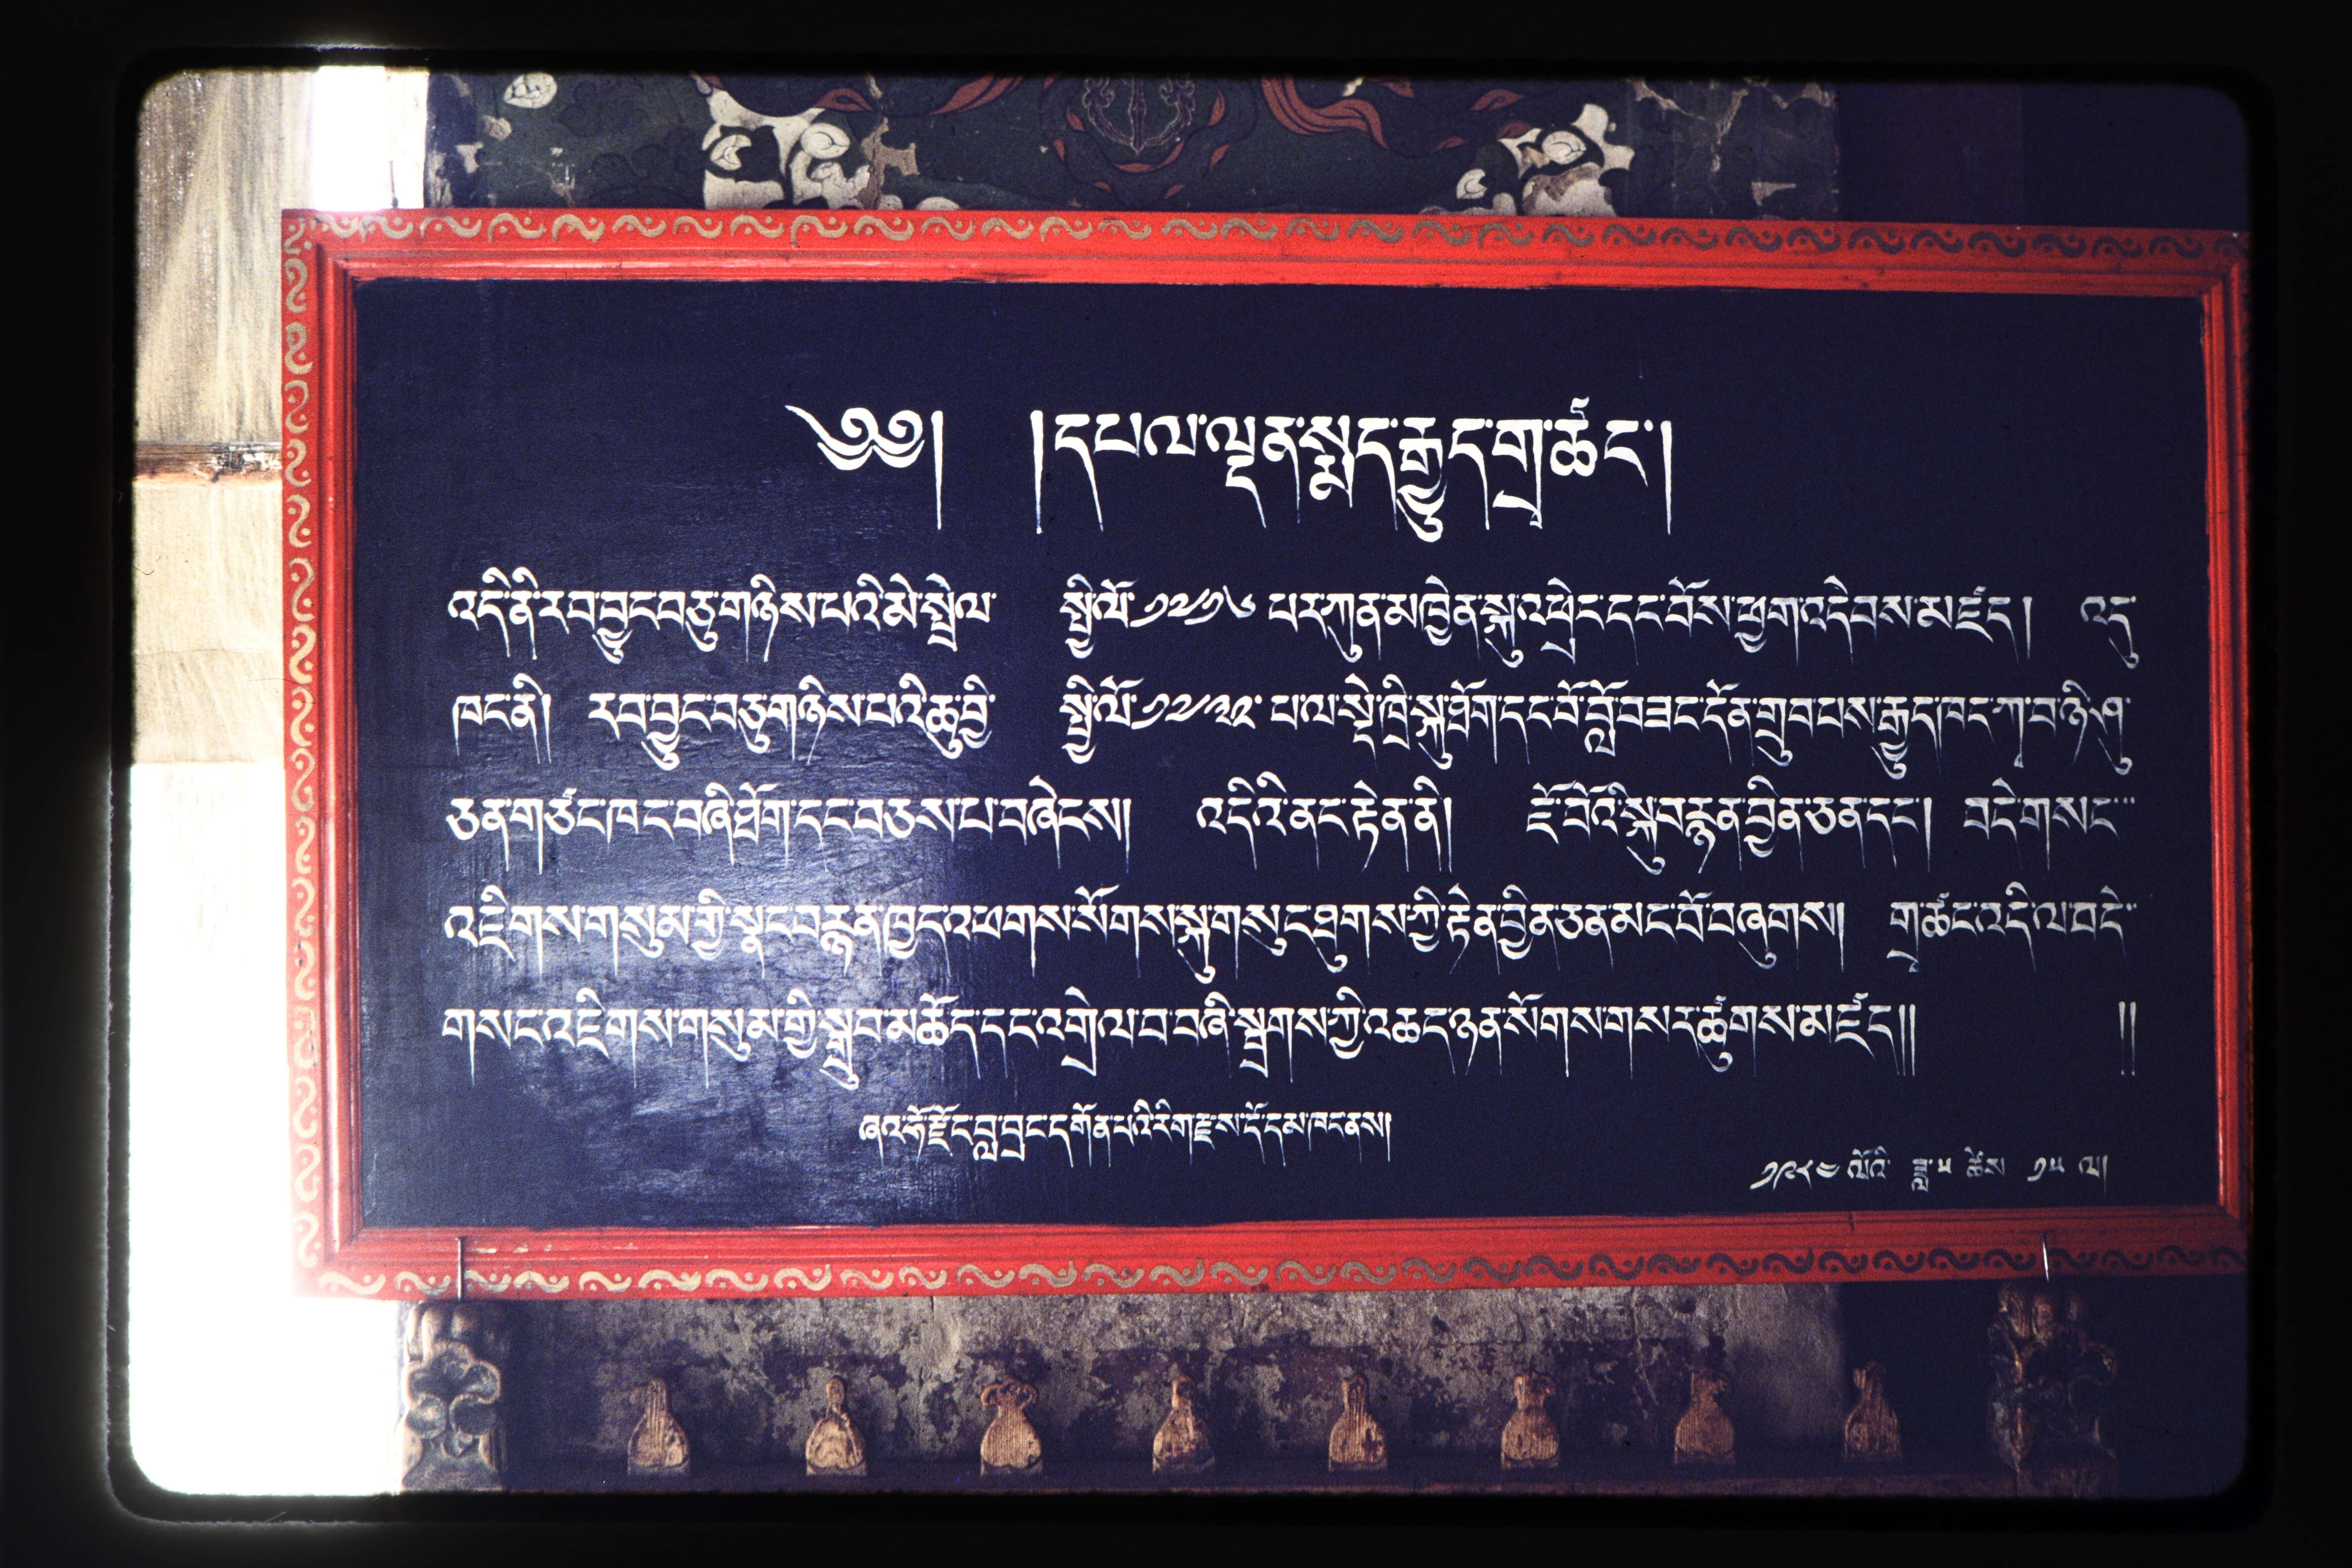 ༄༅། །དཔལ་ལྡན་སྨད་རྒྱུད་གྲྭ་ཚང་།
འདི་ནི་རབ་བྱུང་བཅུ་གཉིས་པའི་མེ་སྤྲེལ་ སྤྱི་ལོ་༡༧༡༦ པར་ཀུན་མཁྱེན་སྐུ་འཕྲེང་དང་པོས་ཕྱག་འདེབས་མཛད། འདུ་
ཁང་ནི། རབ་བྱུང་བཅུ་གཉིས་པའི་ཆུ་བྱི་ སྤྱི་ལོ་༡༧༣༢་ པལ་སྡེ་ཁྲི་སྐུ་ཐོག་དང་པོ་བློ་བཟང་དོན་གྲུབ་པས་རྒྱུད་ཁང་ཀ་བ་ཉི་ཤུ་
ཅན་གཙང་ཁང་བཞི་ཐོག་དང་བཅས་པ་བཞེངས། འདིའི་ནང་རྟེན་ནི། ཇོ་བོའི་སྐུ་བརྙན་བྱིན་ཅན་དང་། བདེ་གསང་
འཇིགས་གསུམ་གྱི་སྣང་བརྙན་ཁྱད་འཕགས་སོགས་སྐུ་གསུང་ཐུགས་ཀྱི་རྟེན་བྱིན་ཅན་མང་པོ་བཞུགས། གྲྭ་ཚང་འདི་ལ་བདེ་
གསང་འཇིགས་གསུམ་གྱི་སྒྲུབ་མཆོད་དང་འགྲེལ་བ་བཞི་སྦྲགས་ཀྱི་འཆད་ཉན་སོགས་གསར་ཚུགས་མཛད།། །།
ཞྭ་ཧོ་རྫོང་བླ་བྲང་དགོན་པའི་རིག་རྫས་དོ་དམ་ཁང་ནས།
༡༩༨༤ ལོའི་ ཟླ་ ༥ ཚེས་ ༡༥ ལ།